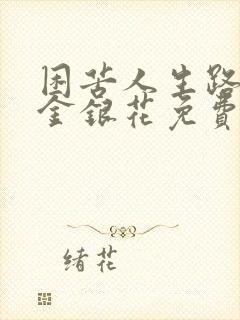 困苦人生路
金银花免費
绪花